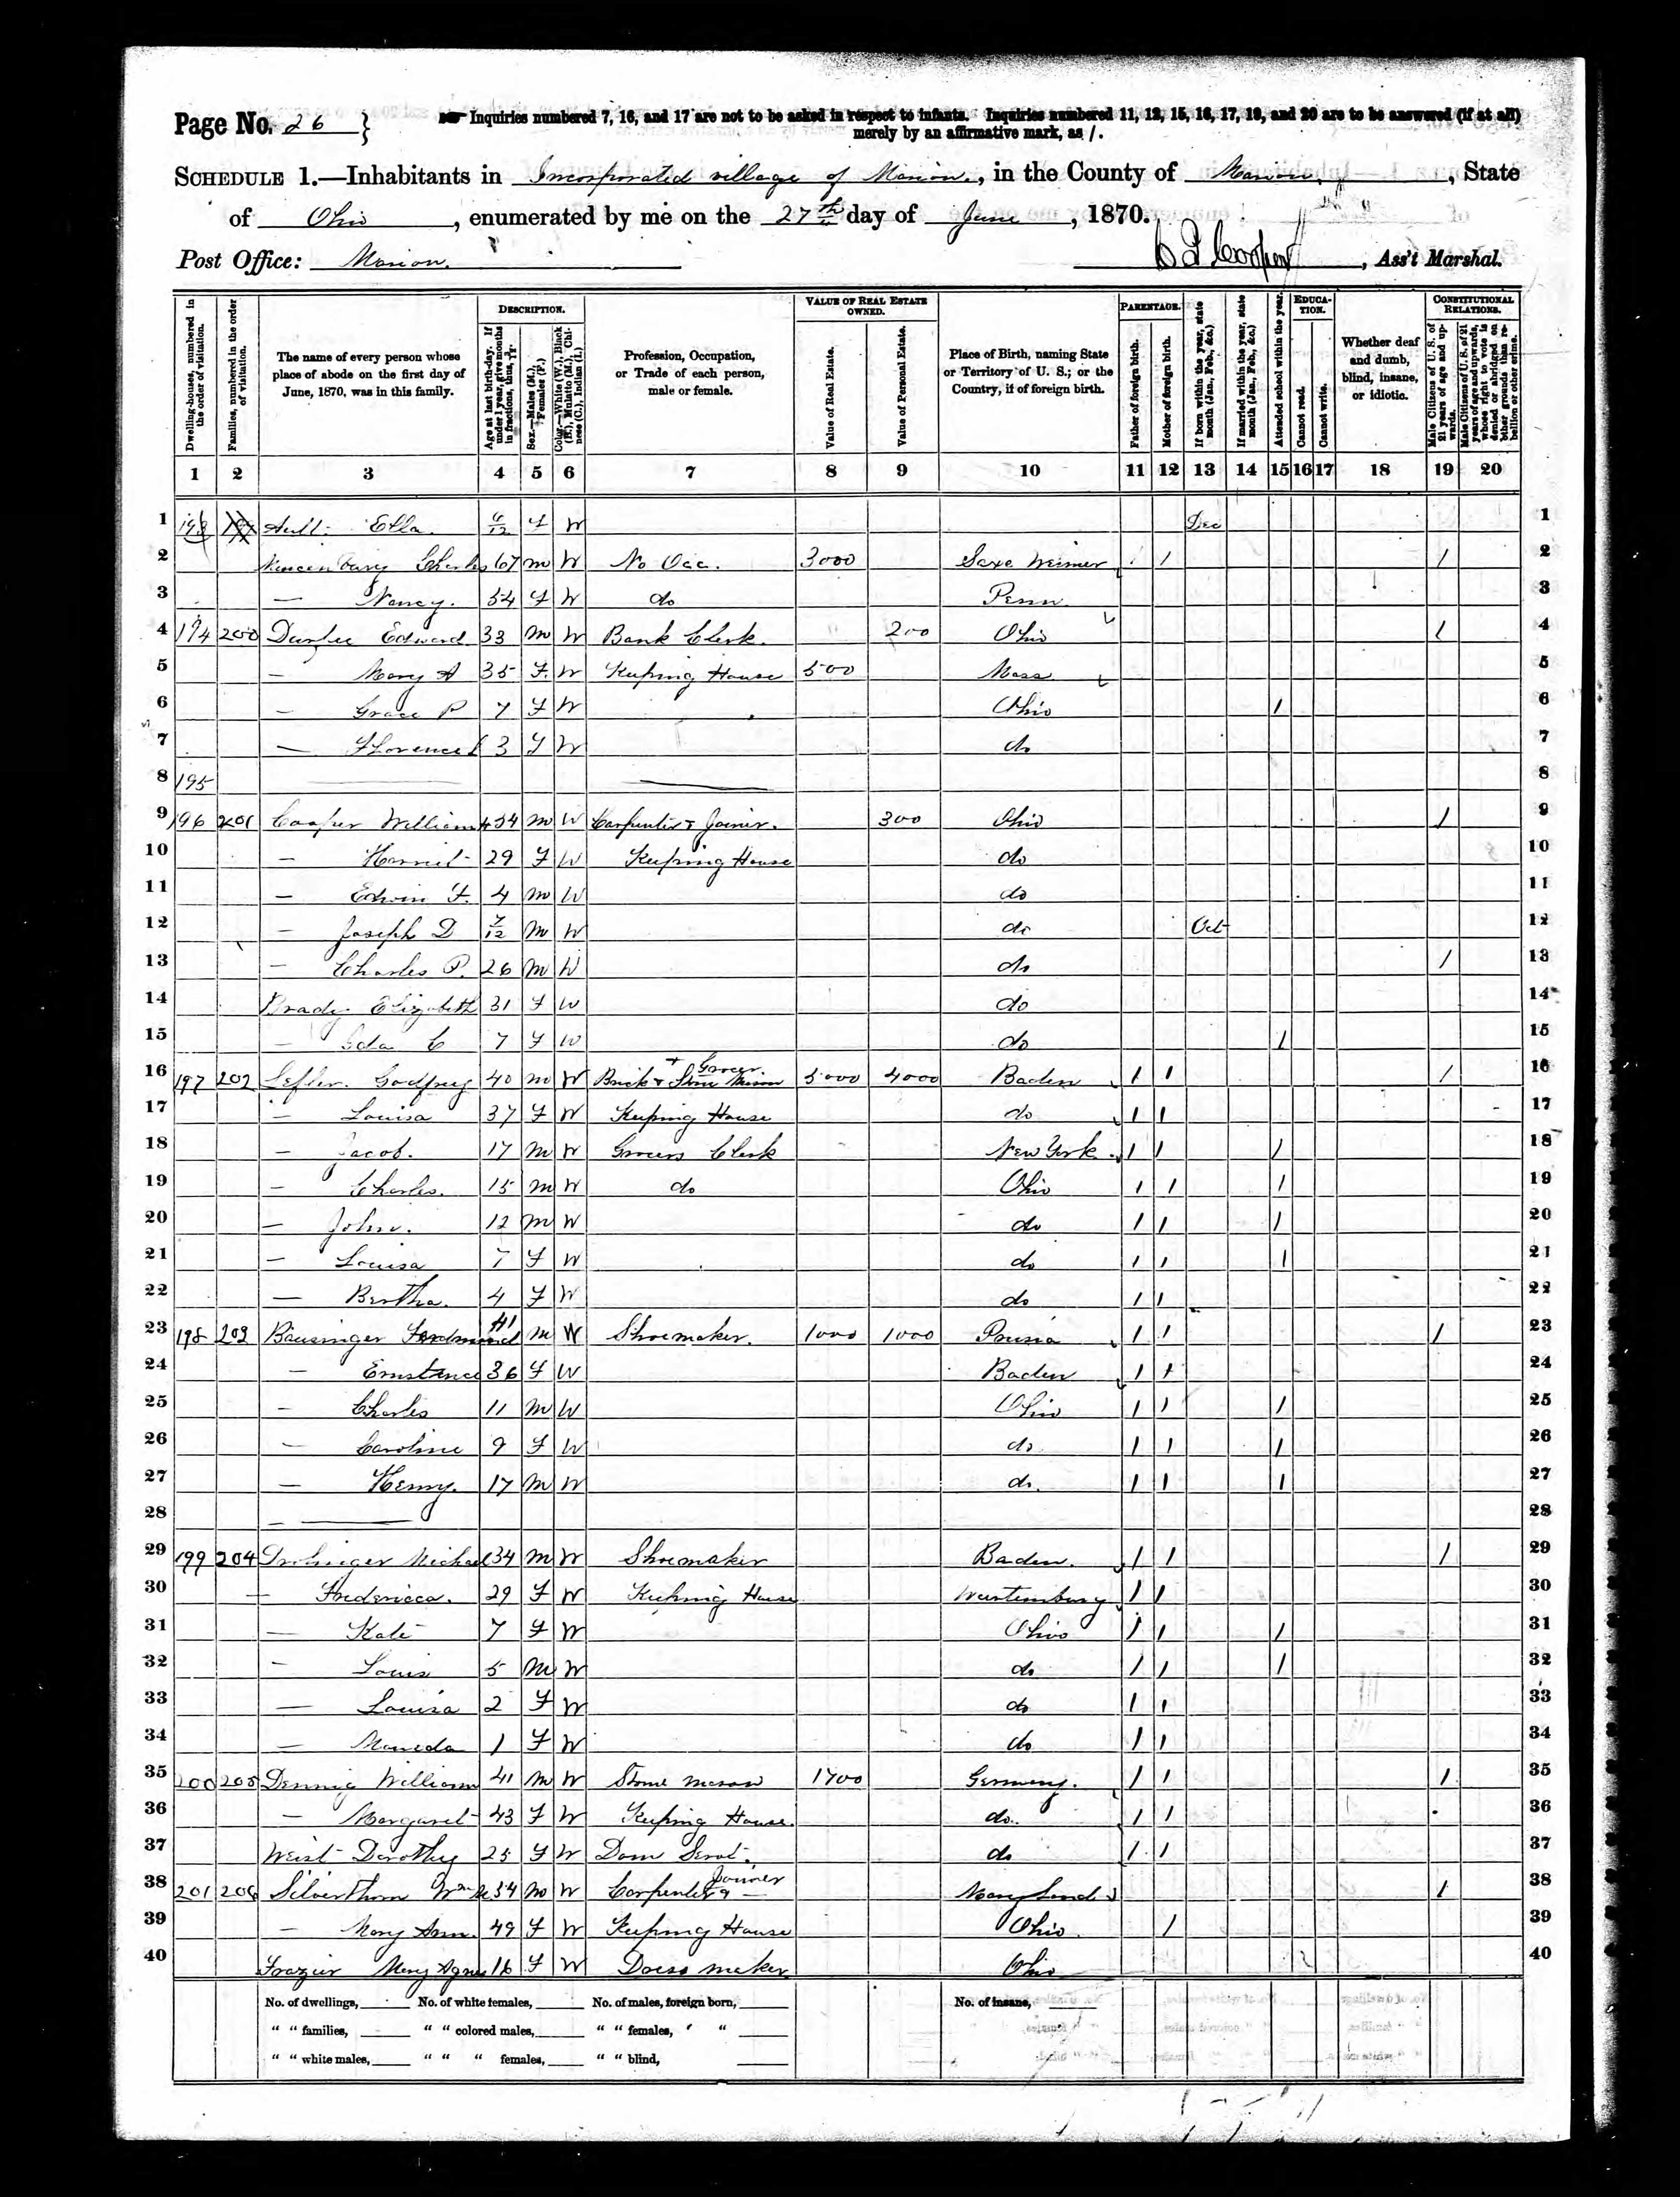 Page No. 26 }
Inquiries numbered 7, 16, and 17 are not to be asked in respect to infants. Inquiries numbered 11, 12, 15, 16, 17, 19, and 20 are to be answered (if at all)
merely by an affirmative mark, as /.
SCHEDULE 1.—Inhabitants in Incorporated village of Marion, in the County of Marion, State
of Ohio, enumerated by me on the 27th day of June, 1870.
Post Office: Marion. Cooper, Ass't Marshal.
Dwelling-houses, numbered in the order of visitation.
Families, numbered in the order of visitation.
The name of every person whose place of abode on the first day of June, 1870, was in this family.
DESCRIPTION.
Age at last birth-day. If under 1 year, give months in fractions, thus, 3/12.
Sex.—Males (M.), Females (F.)
Color.—White (W.), Black (B.), Mulatto (M.), Chinese (C.), Indian (I.)
Profession, Occupation, or Trade of each person, male or female.
VALUE OF REAL ESTATE OWNED.
Value of Real Estate.
Value of Personal Estate.
Place of Birth, naming State or Territory of U. S.; or the Country, if of foreign birth.
PARENTAGE.
Father of foreign birth.
Mother of foreign birth.
If born within the year, state month (Jan., Feb., &c.)
If married within the year, state month (Jan., Feb., &c.)
Attended school within the year.
EDUCATION.
Cannot read.
Cannot write.
Whether deaf and dumb, blind, insane, or idiotic.
CONSTITUTIONAL RELATIONS.
Male Citizens of U. S. of 21 years of age and upwards.
Male Citizens of U. S. of 21 years of age and upwards, whose right to vote is denied or abridged on other grounds than rebellion or other crime.
1 2 3 4 5 6 7 8 9 10 11 12 13 14 15 16 17 18 19 20
1 193 Ault Ella. 6/12 F W Dec 1
2 Charles 67 M W No Occ. 3000 Saxe Weimer / / / 2
3 — Nancy. 54 F W do Penn 3
4 194 200 Edward 33 M W Bank Clerk. 200 Ohio / 4
5 — Mary A 35 F. W Keeping House 500 Mass 5
6 — Grace P 7 F W Ohio / 6
7 — Florence 3 F W do 7
8 195 — — 8
9 196 201 Cooper William 34 M W Carpenter & Joiner. 300 Ohio / 9
10 — Harriet 29 F W Keeping House do 10
11 — Edwin F. 4 M W do 11
12 — Joseph D 7/12 M W do Oct 12
13 — Charles P. 26 M W do / 13
14 Brady Elizabeth 31 F W do 14
15 — Ida C 7 F W do / 15
16 197 202 Lefler. Godfrey 40 M W Brick & Stone Mason + Grocer 5000 4000 Baden / / / 16
17 — Louisa 37 F W Keeping House do / / 17
18 — Jacob. 17 M W Grocers Clerk New York / / / 18
19 — Charles. 15 M W do Ohio / / / 19
20 — John. 12 M W do / / / 20
21 — Louisa 7 F W do / / / 21
22 — Bertha. 4 F W do / / 22
23 198 203 Bausinger 41 M W Shoemaker. 1000 1000 Prusia / / / 23
24 — 36 F W Baden / / 24
25 — Charles 11 M W Ohio / / / 25
26 — Caroline 9 F W do / / / 26
27 — Henry. 17 M W do. / / / 27
28 — 28
29 199 204 Michael 34 M W Shoemaker Baden. / / / 29
30 — Fredericca. 29 F W Keeping House Wurtemburg / / 30
31 — Kate 7 F W Ohio / / / 31
32 — Louis 5 M W do / / / 32
33 — Louisa 2 F W do / / 33
34 — 1 F W do / / 34
35 200 205 Dennig William 41 M W Stone mason 1700 Germany. / / / 35
36 — Margaret 43 F W Keeping House. do. / / 36
37 Weist Dorothy 25 F W Dom Servt. do / / 37
38 201 206 Silverthorn Wm 54 M W Carpenter & Joiner Maryland / 38
39 — Mary Ann. 49 F W Keeping House Ohio. / 39
40 Frazier Mary Agnes 16 F W Dress maker Ohio 40
No. of dwellings, No. of white females, No. of males, foreign born, No. of insane,
" " families, " " colored males, " " females, " "
" " white males, " " " females, " " blind,